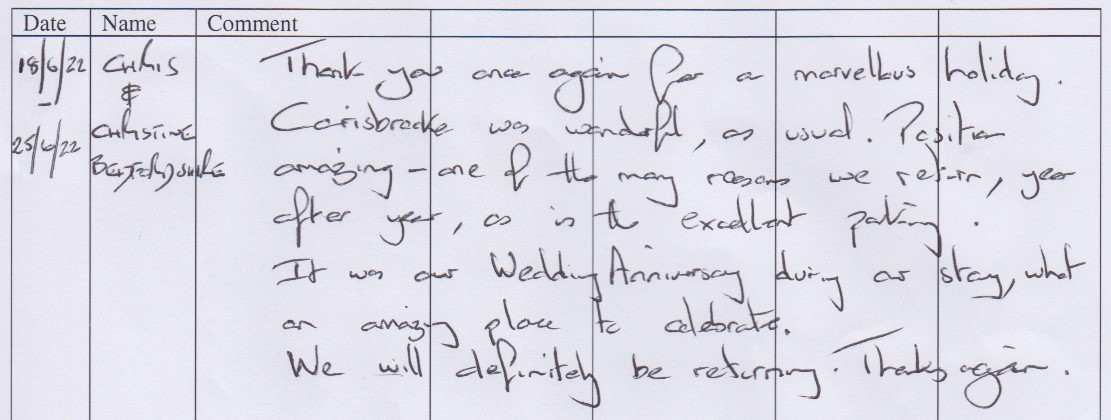 Date Name Comment
18/6/22 CHRIS Thank you once again for a marvellous holiday.
- & Carisbrooke was wonderful, as usual. Position
25/6/22 CHRISTINE amazing - one of the many reasons we return, year
after year, as is the excellent parking.
It was our Wedding Anniversary during our stay, what
an amazing place to celebrate.
We will definitely be returning. Thanks again.